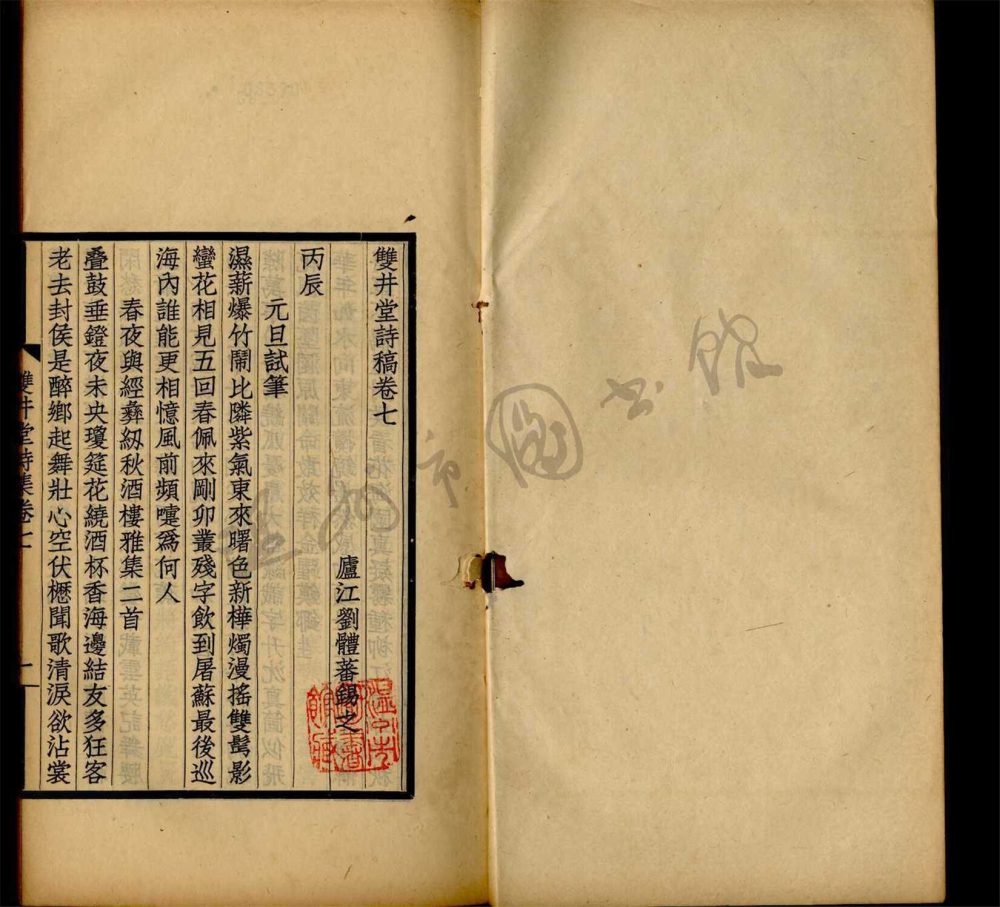 雙井堂詩稿卷七
廬江劉體蕃錫之
丙辰
元旦試筆
濕薪爆竹鬧比隣紫氣東來曙色新樺燭漫搖雙鬢影
蠻花相見五回春佩來剛卯叢殘字飲到屠蘇最後巡
海內誰能更相憶風前頻嚏爲何人
春夜與經彝紉秋酒樓雅集二首
疊鼓垂鐙夜未央瓊筵花繞酒杯香海邊結友多狂客
老去封侯是醉鄉起舞壯心空伏櫪聞歌清淚欲沾裳
雙井堂詩集卷七
一
溫州市圖書館藏
溫州市圖書館